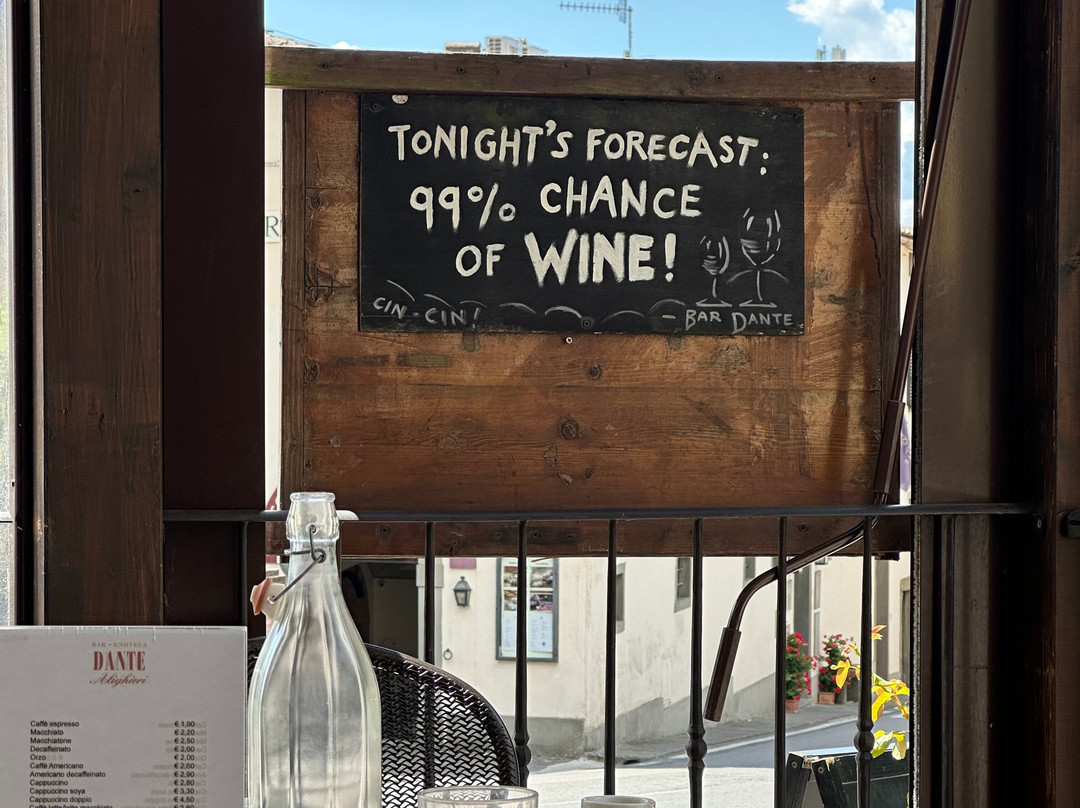 TONIGHT'S FORECAST:
99% CHANCE
OF WINE!
CIN-CIN!
- BAR DANTE
R
BAR - ENOTECA
DANTE
Alighieri
Caffè espresso € 1,00
Macchiato € 2,20
Macchiatone € 2,50
Decaffeinato € 2,00
Orzo € 2,00
Caffè Americano € 2,60
Americano decaffeinato € 2,90
Cappuccino € 2,80
Cappuccino soya € 3,30
Cappuccino doppio € 4,50